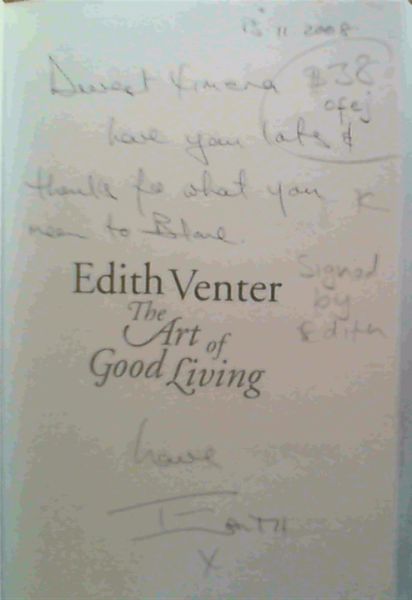 15 11 2008
Dearest Ximena $38
ofej
have you lots &
thanks for what you
mean to
Edith Venter
The
Art of
Good Living
Signed
by
Edith
Edith
X